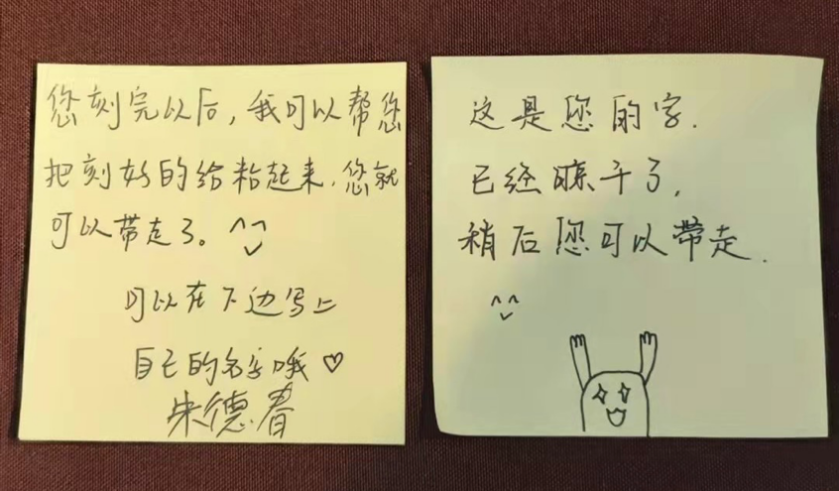 您刻完以后，我可以帮您
把刻好的给粘起来.您就
可以带走了。
可以在下边写上
自己的名字哦♡
朱德春
这是您的字.
已经晾干了,
稍后您可以带走.